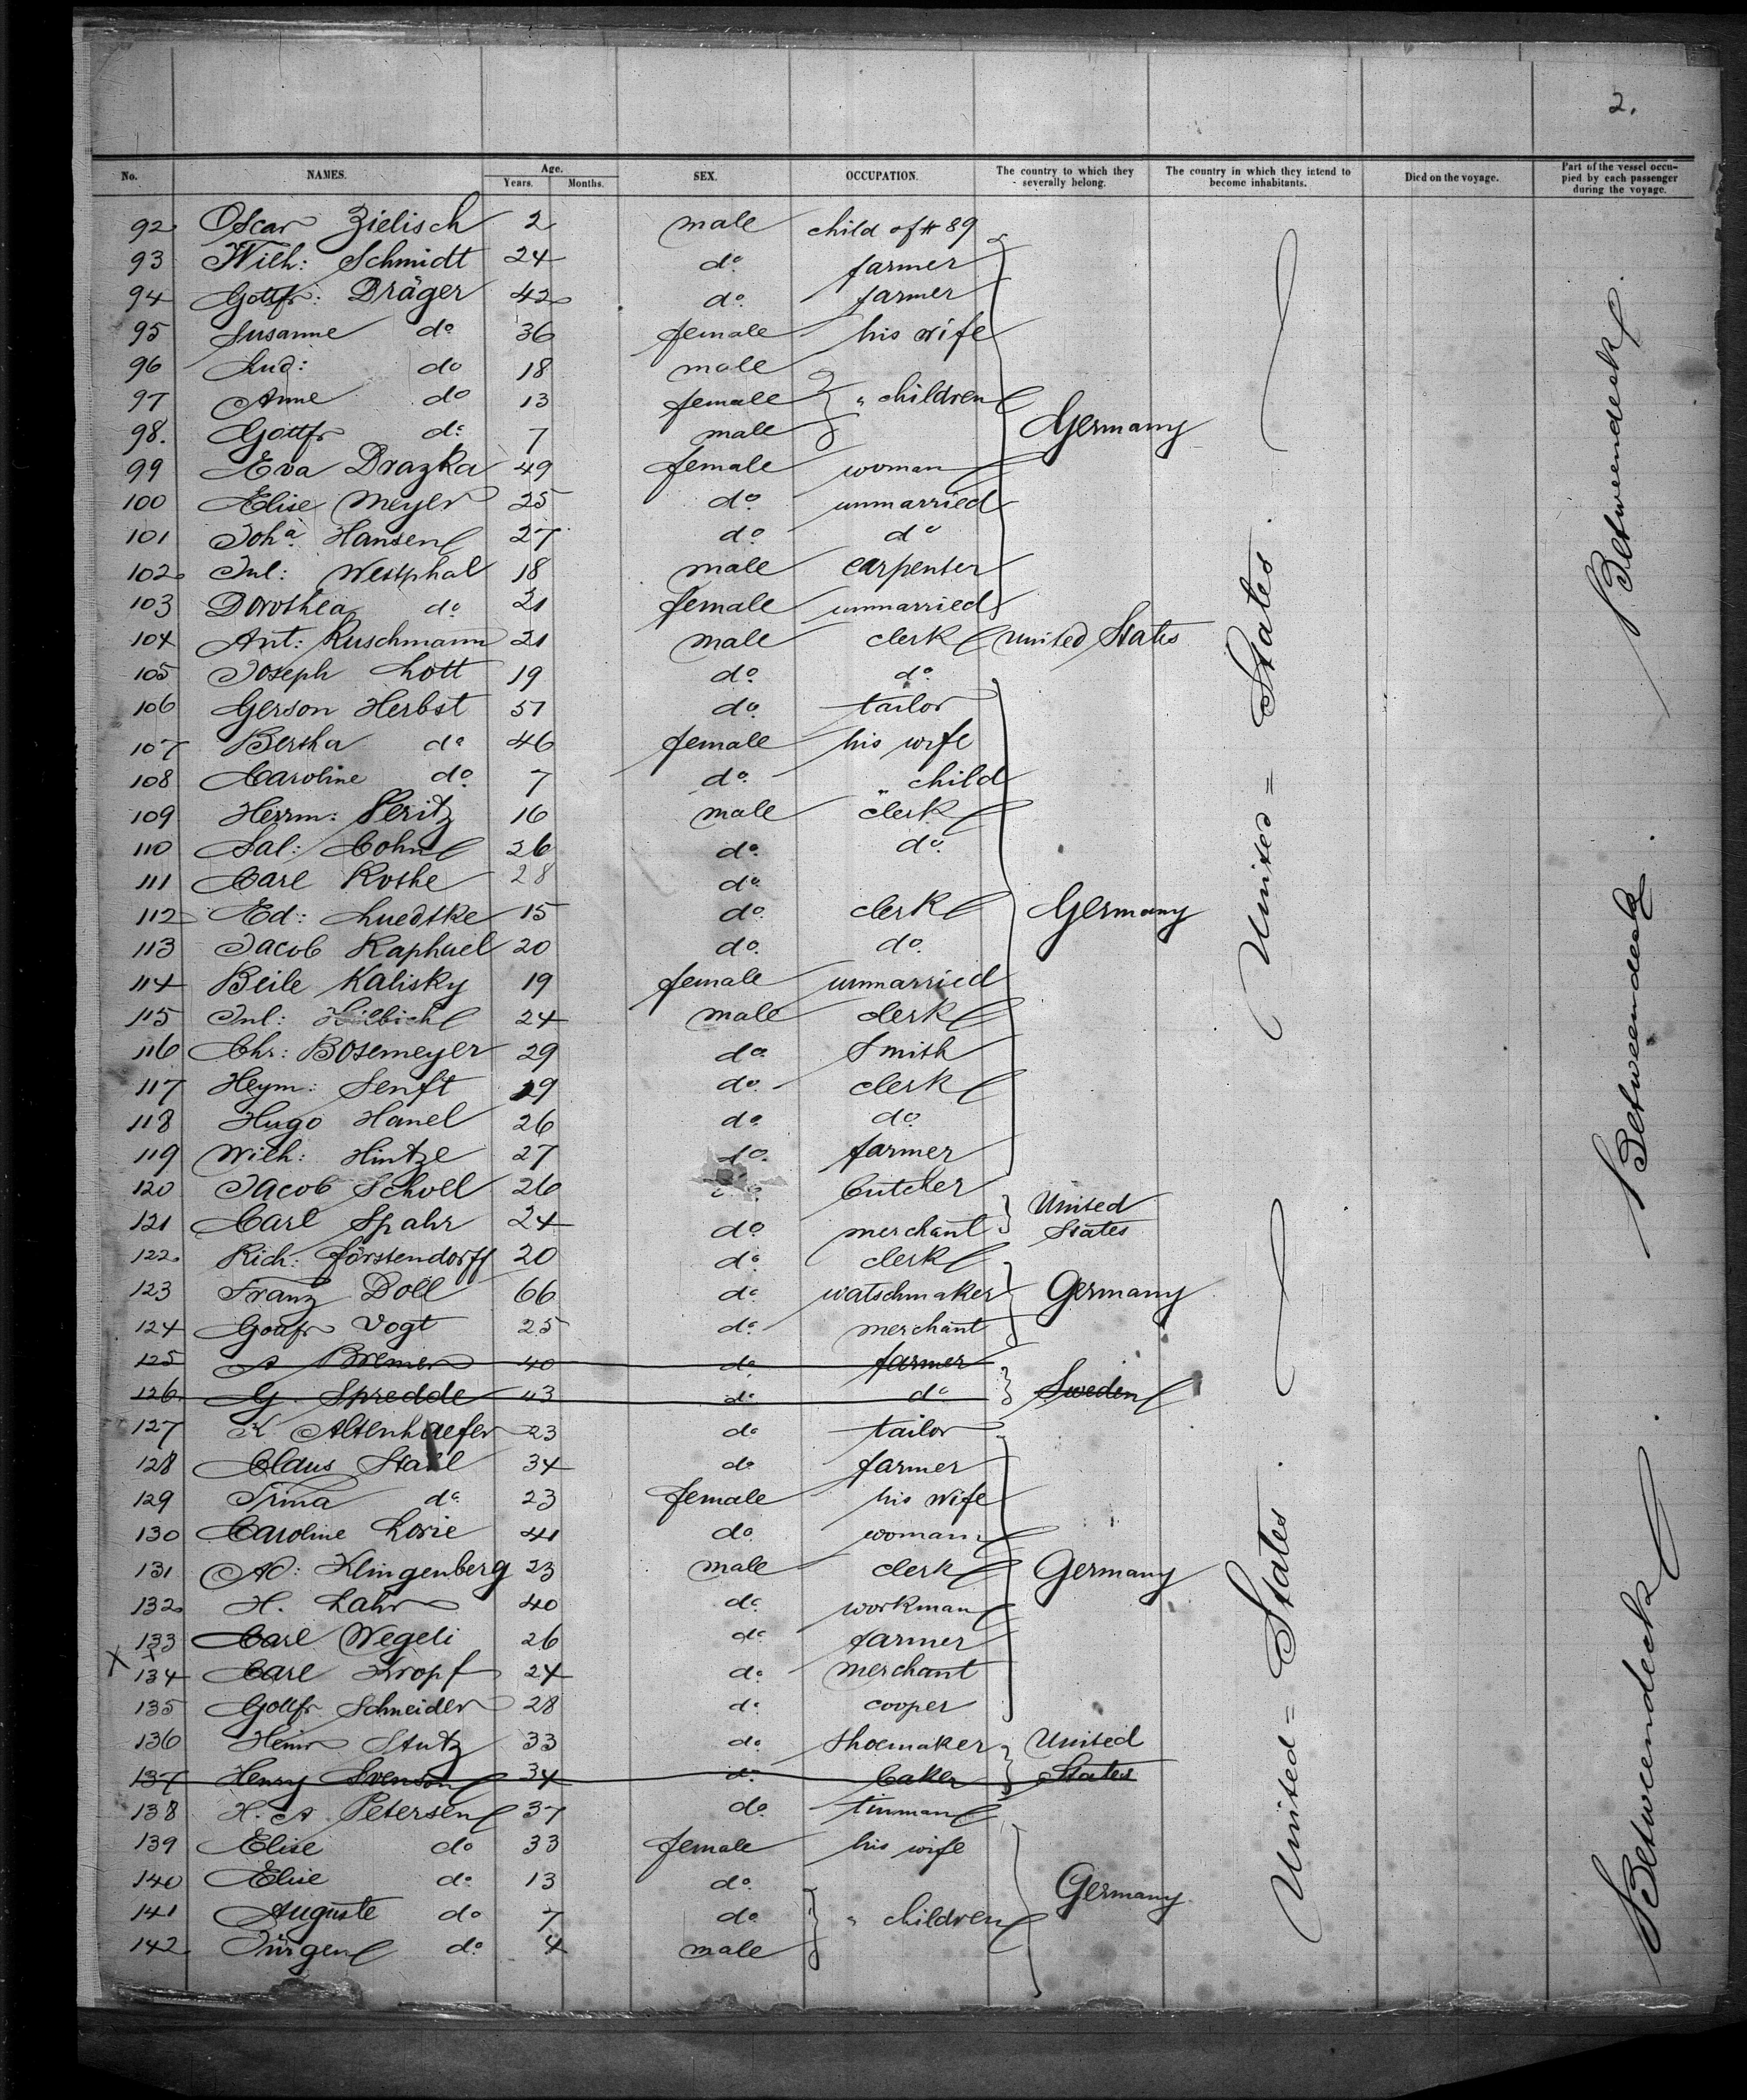 2.
No. NAMES. Age. Years. Months. SEX. OCCUPATION. The country to which they severally belong. The country in which they intend to become inhabitants. Died on the voyage. Part of the vessel occupied by each passenger during the voyage.
92 Oscar Zielisch 2 male child of # 89
93 Wilh: Schmidt 24 do. farmer
94 Gottfr: Dräger 42 do. farmer
95 Susanne do 36 female his wife
96 Lud: do 18 male
97 Anne do 13 female " children
98. Gottfr do. 7 male Germany
99 Eva Drazka 49 female woman
100 Elise Meyer 25 do. unmarried
101 Joha. Hansen 27 do. do
102 Jul: Westphal 18 male carpenter
103 Dorothea do. 21 female unmarried
104 Ant: Ruschmann 21 male clerk United States
105 Joseph Lott 19 do. do.
106 Gerson Herbst 57 do. tailor
107 Bertha do 46 female his wife
108 Caroline do. 7 do. " child
109 Herrm: Peritz 16 male clerk
110 Sal: Cohn 26 do. do.
111 Carl Rothe 28 do.
112 Ed: Luedtke 15 do. clerk Germany
113 Jacob Raphael 20 do. do.
114 Beile Kalisky 19 female unmarried
115 Jul: 24 male clerk
116 Chr: Bosemeyer 29 do. Smith
117 Heym: Senft 29 do. clerk
118 Hugo Hanel 26 do. do.
119 Wilh: Hintze 27 do. farmer
120 Jacob Scholl 26 butcher United
121 Carl Spahr 24 do merchant States
122. Rich: Förstendorff 20 do. clerk
123 Franz Doll 66 do. watschmaker Germany
124 Gottfr Vogt 25 do. merchant
125 A Bremer 40 do. farmer
126 G. Spredde 43 do. do. Sweden
127 K Altenhaefer 23 do tailor
128 Claus Stahl 34 do farmer
129 Trina do. 23 female his wife
130 Caroline Lorie 41 do. woman
131 Ad: Klingenberg 23 male clerk Germany
132 H. Lahr 40 do. workman
133 Carl Wegeli 26 do. farmer
X X 134 Carl Kropf 24 do. merchant
135 Gottfr. Schneider 28 do. cooper
136 Heinr Stutz 33 do. Shoemaker United
137 Henry Svenson 34 do. baker States
138 H. A Petersen 37 do. tinman
139 Elise do 33 female his wife
140 Elise do. 13 do. Germany
141 Auguste do 7 do. " children
142. Jürgen do. 4 male
United = States.
United = States.
Betweendeck.
Betweendeck.
Betweendeck.